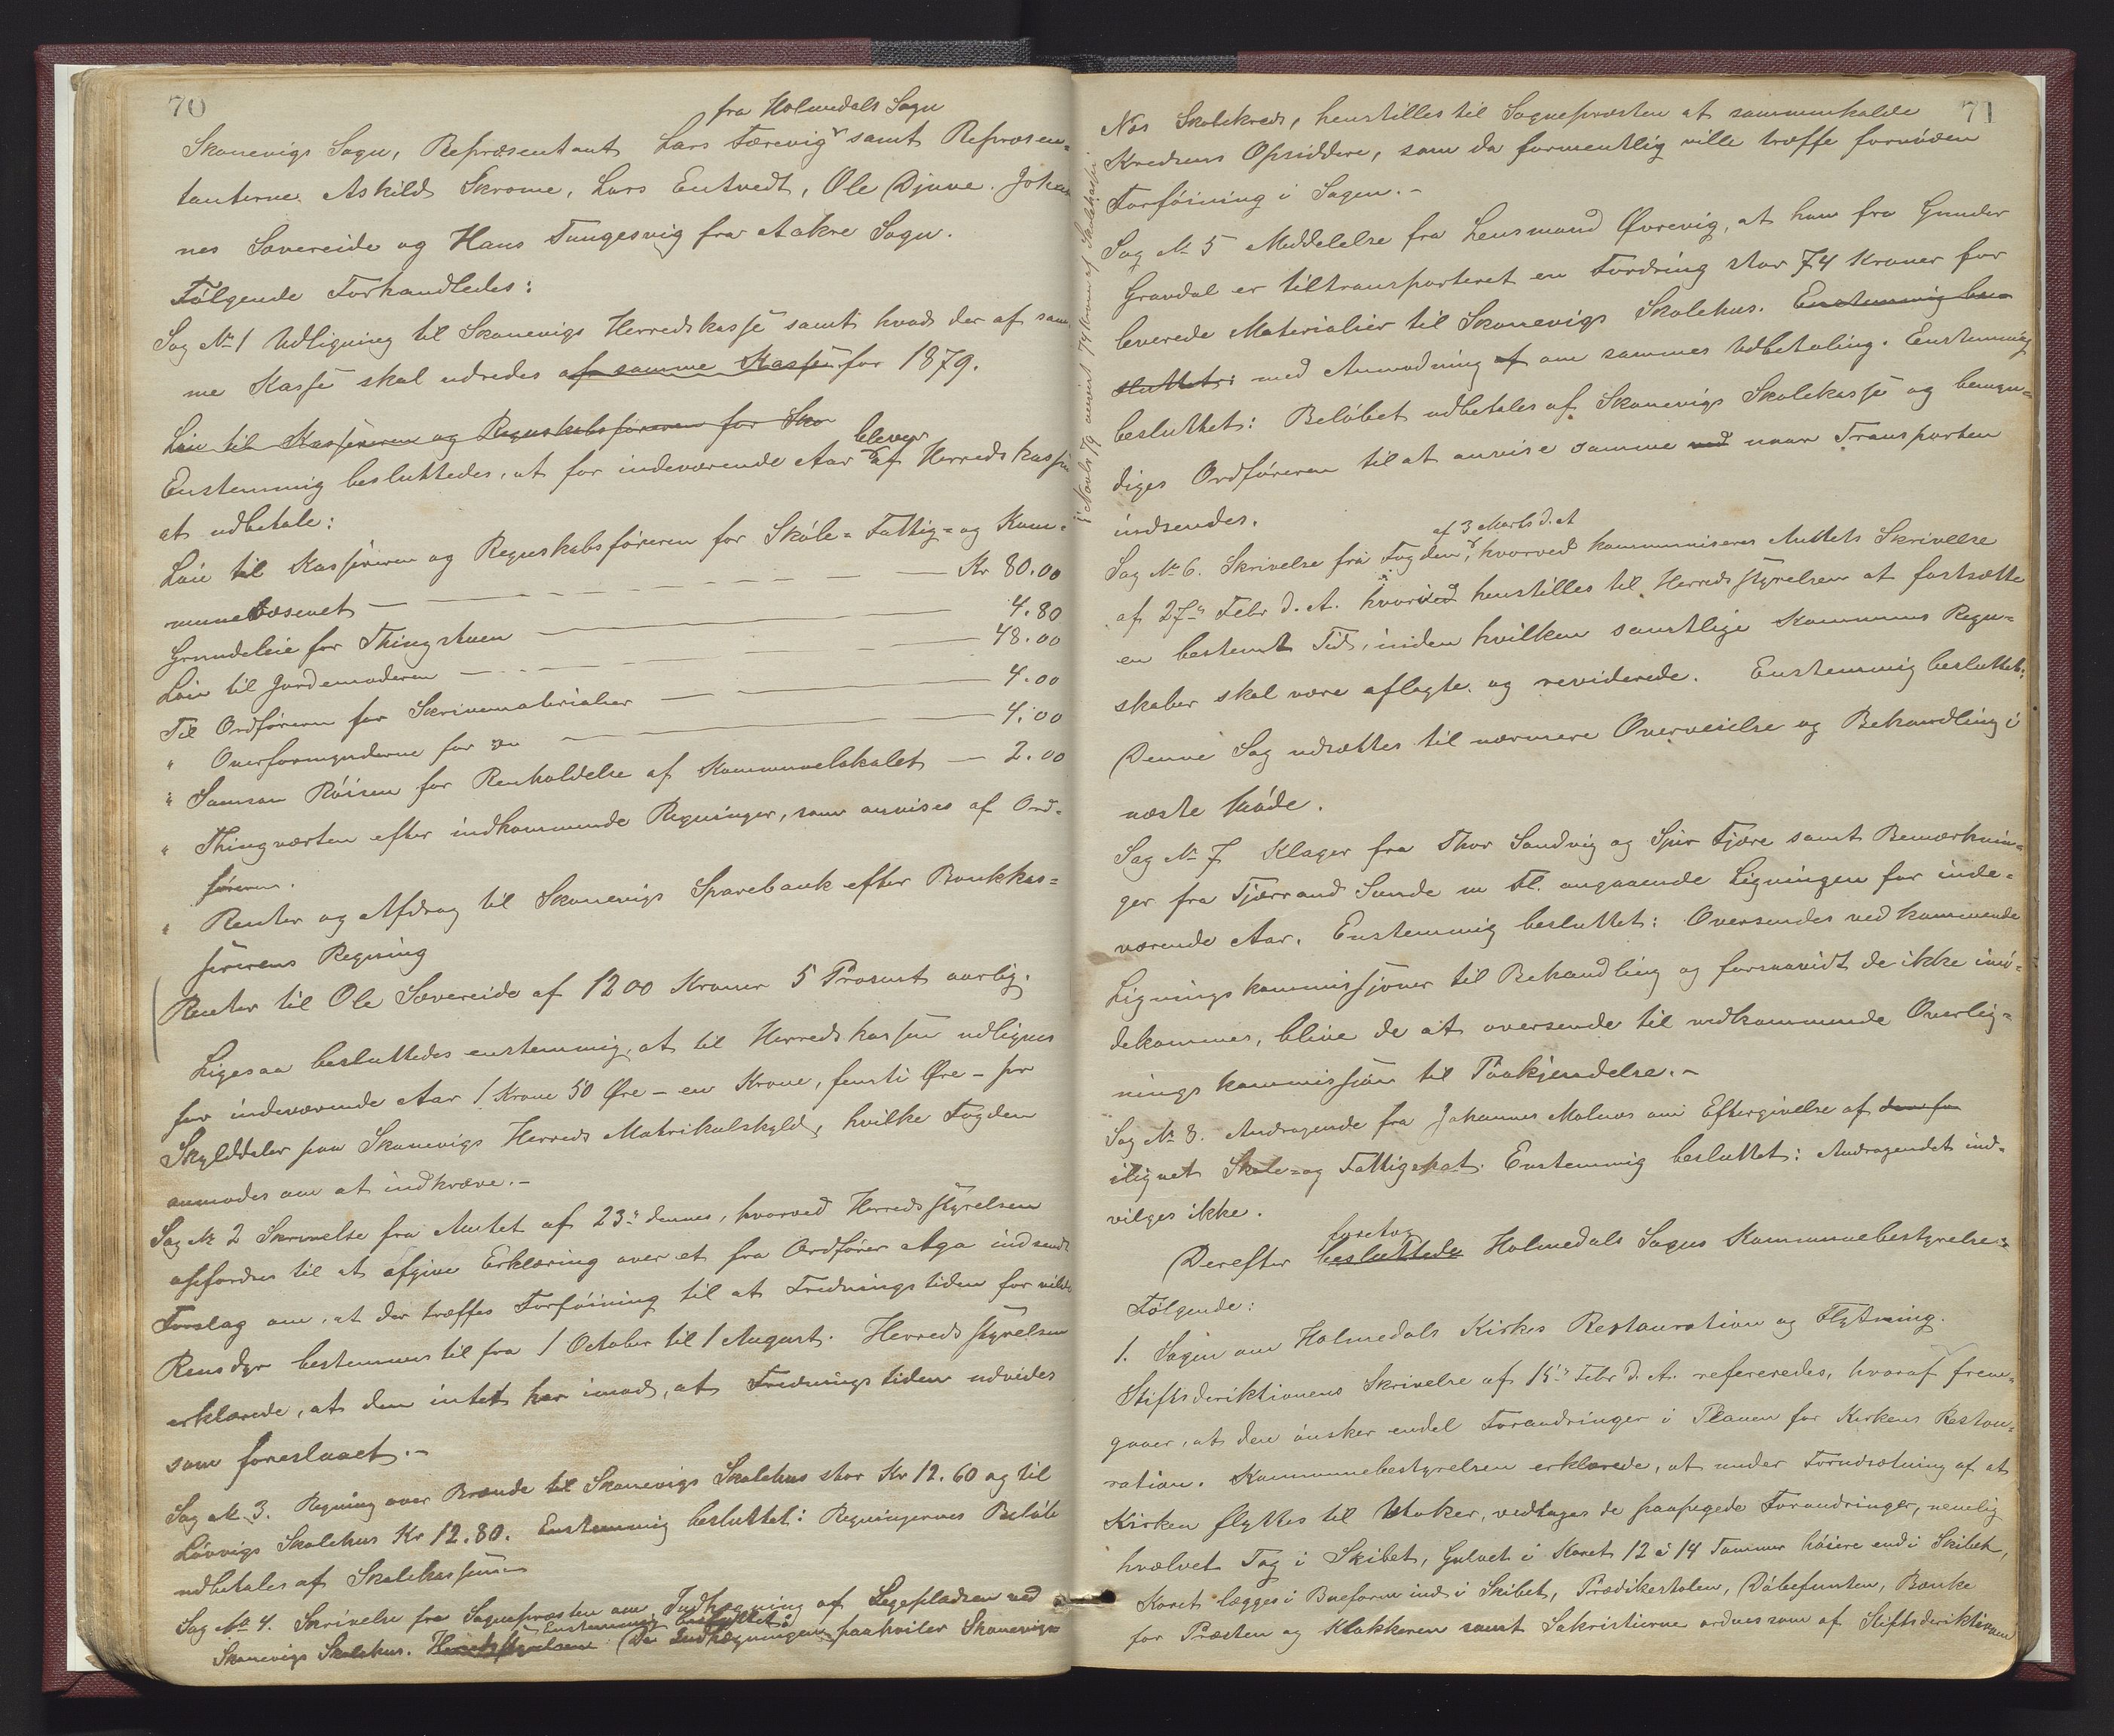 70
fra Holmedals Sogn
Skonevigs Sogn, Repræsentant Lars Tærevig samt Repræsen-
tanterne Askild Skrome, Lars Entvedt, Ole Djuve. Johan
nes Sævereide og Hans Tungesvig fra Aakre Sogn.
Følgende Forhandledes:
Sag No 1 Udligning til Skonevigs Herredskasse samt hvad der af sam-
me Kasse skal udredes af samme Kasse for 1879.
Løn til Kassereren og Regnskabsføreren for Sko
Enstemmig besluttedes, at for indeværende Aar bliver af Herredskassen
at udbetale:
Løn til Kassereren og Regnskabsføreren for Skole- Fattig- og Kom-
munevæsenet Kr 80.00
Grundleie for Thingstuen 4.80
Løn til Jordemoderen 48.00
Til Ordføreren for Skrivematerialier 4.00
" Overformynderne for do 4.00
" Samson Røisen for Renholdelse af Kommunelokalet 2.00
" Thingværten efter indkommende Regninger, som anvises af Ord-
føreren.
" Renter og Afdrag til Skonevigs Sparebank efter Bankkas-
sererens Regning
Renter til Ole Sævereide af 1200 Kroner 5 Prosent aarlig.
Ligesaa besluttedes enstemmig, at til Herredskassen udlignes
for indeværende Aar 1 Krone 50 Øre - en Krone, femti Øre - pr
Skylddaler paa Skonevigs Herreds Matrikulskyld, hvilke Fogden
anmodes om at indkræve.-
Sag No 2 Skrivelse fra Amtet af 23de dennes, hvorved Herredsstyrelsen
opfordres til at afgive Erklæring over et fra Ordfører Aga indsendt
Forslag om, at der træffes Forføining til at Fredningstiden for vilde
Rensdyr bestemmes til fra 1 October til 1 August. Herredsstyrelsen
erklærede, at den intet har imod, at Fredningstiden udvides
som foreslaaet.-
Sag No 3. Regning over Brænde til Skonevigs Skolehus stor Kr 12.60 og til
Løvvigs Skolehus Kr 12.80. Enstemmig besluttet: Regningernes Beløb
udbetales af Skolekassen.-
Sag No 4. Skrivelse fra Sognepræsten om Indhægning af Legepladsen ved
Enstemmig besluttet:
Skonevigs Skolehus. Herredsstyrelsen Da Indhægningen paahviler Skonevigs
71
Nos Skolekreds, henstilles til Sognepræsten at sammenkalde
Kredsens Opsiddere, som da formentlig ville træffe fornøden
Forføining i Sagen.-
Sag No 5 Meddelelse fra Lensmand Øvrevig, at han fra Gunder
Gravdal er tiltransporteret en Fordring stor 74 Kroner for
leverede Materialier til Skonevigs Skolehus. Enstemmig be-
sluttet: med Anmodning af om sammes Udbetaling. Enstemmig
besluttet: Beløbet udbetales af Skonevigs Skolekasse og bemyn-
diges Ordføreren til at anvise samme ved naar Transporten
indsendes.
af 3 Marts d. A
Sag No 6. Skrivelse fra Fogden, hvorved kommuniseres Amtets Skrivelse
af 27de Febr d. A. hvori henstilles til Herredsstyrelsen at fastsætte
en bestemt Tid, inden hvilken samtlige Kommunens Regn-
skaber skal være aflagte og reviderede. Enstemmig besluttet:
Denne Sag udsættes til nærmere Overveielse og Behandling i
næste Møde.
Sag No 7 Klager fra Thor Sandvig og Sjur Fjære samt Bemærknin-
ger fra Tjærrand Sunde m fl. angaaende Ligningen for inde-
værende Aar. Enstemmig besluttet: Oversendes vedkommende
Ligningskommissioner til Behandling og forsaavidt de ikke imø-
dekommes, blive de at oversende til vedkommende Overlig-
ningskommission til Paakjendelse.-
Sag No 8. Andragende fra Johannes Molnes om Eftergivelse af den for
ilignet Skole- og Fattigskat. Enstemmig besluttet: Andragendet ind-
vilges ikke.
foretog
Derefter besluttede Holmedals Sogns Kommunebestyrelse:
Følgende:
1. Sagen om Holmedals Kirkes Restauration og Flytning.
Stiftsdirektionens Skrivelse af 15de Febr d. A. refereredes, hvoraf frem-
gaaer, at den ønsker endel Forandringer i Planen for Kirkens Restau-
ration. Kommunebestyrelsen erklærede, at under Forudsætning af at
Kirken flyttes til Utaker, vedtages de paapegede Forandringer, nemlig
hvælvet Tag i Skibet, Gulvet i Koret 12 à 14 Tommer høiere end i Skibet,
Koret lægges i Bueform ind i Skibet, Prædikestolen, Døbefunten, Bænke
for Præsten og Klokkeren samt Sakristierne ordnes som af Stiftsdirektionen
i Novbr 79 anvist 74 Kroner af Skolekassen